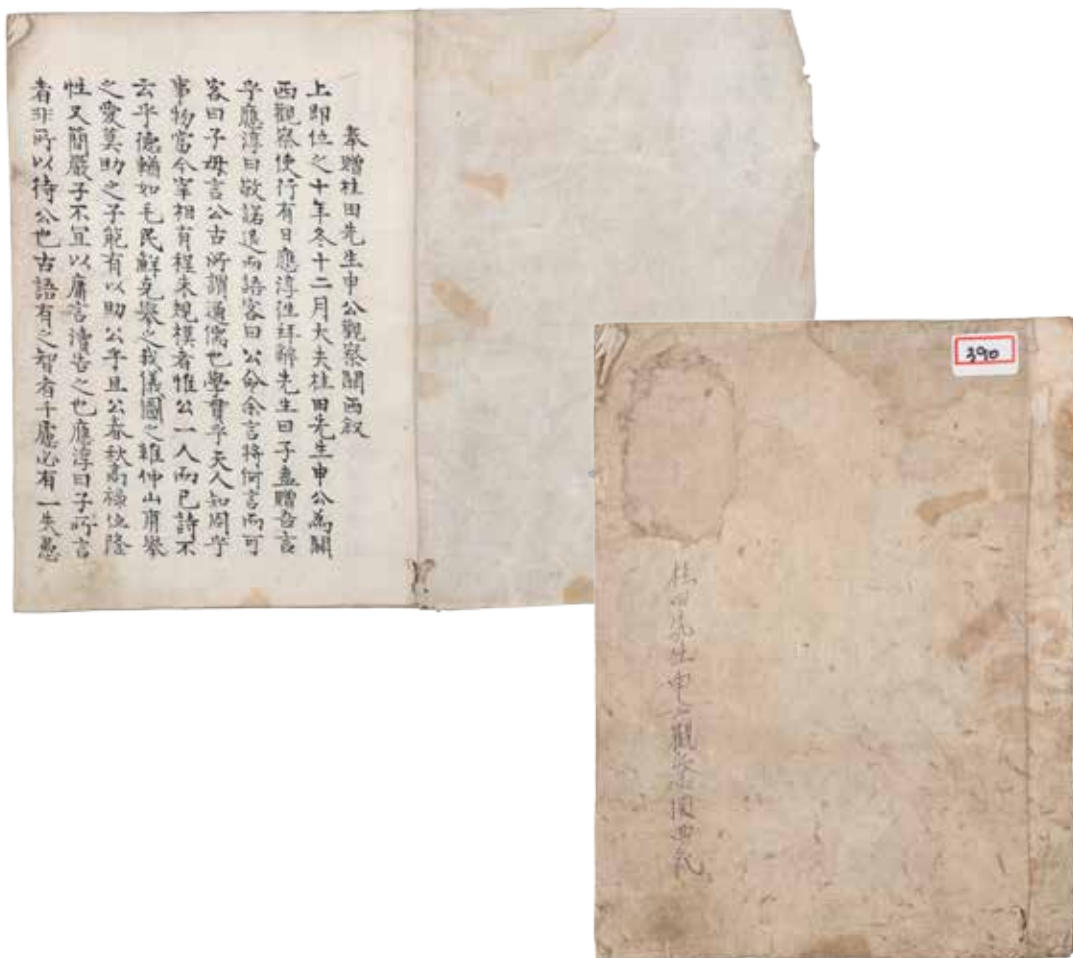 奉贈桂田先生申公觀察關西叙
上卽位之十年冬十二月大夫桂田先生申公爲關
西觀察使行有日應淳徃拜辭先生曰子盍贈吾言
乎應淳曰敬諾退而語客曰公命余言將何言而可
客曰子毋言公古所謂通儒也學貫乎天人知周乎
事物當今宰相有程朱規模者惟公一人而已詩不
云乎德輶如毛民鮮克舉之我儀圖之維仲山甫舉
之愛莫助之子能有以助公乎且公春秋高祿位隆
性又簡嚴子不宜以庸言瀆告之也應淳曰子所言
者非所以待公也古語有之智者千慮必有一失愚
390
桂田先生申公觀察関西叙